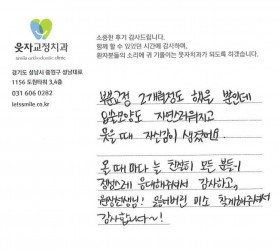 웃자교정치과
smile orthodontic clinic
경기도 성남시 중원구 성남대로
1156 도원타워 3,4층
031 606 0282
letssmile.co.kr
소중한 후기 감사드립니다.
함께 할 수 있었던 시간에 감사하며,
환자분들의 소리에 귀 기울이는 웃자치과가 되도록 하겠습니다.
부분교정 2개월정도 했을 뿐인데
입술모양도 자연스러워지고
웃을때 자신감이 생겼어요.
올 때 마다 늘 친절히 모든 분들이
정성스레 응대해주셔서 감사하고,
원장선생님! 잃어버린 미소 찾게해주셔서
감사합니다~!